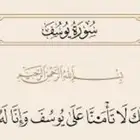 سُورَةُ يُوسُفَ
بِسْمِ اللَّهِ الرَّحْمَٰنِ الرَّحِيمِ
لَا تَأْمَنَّا عَلَىٰ يُوسُفَ وَإِنَّا لَهُ